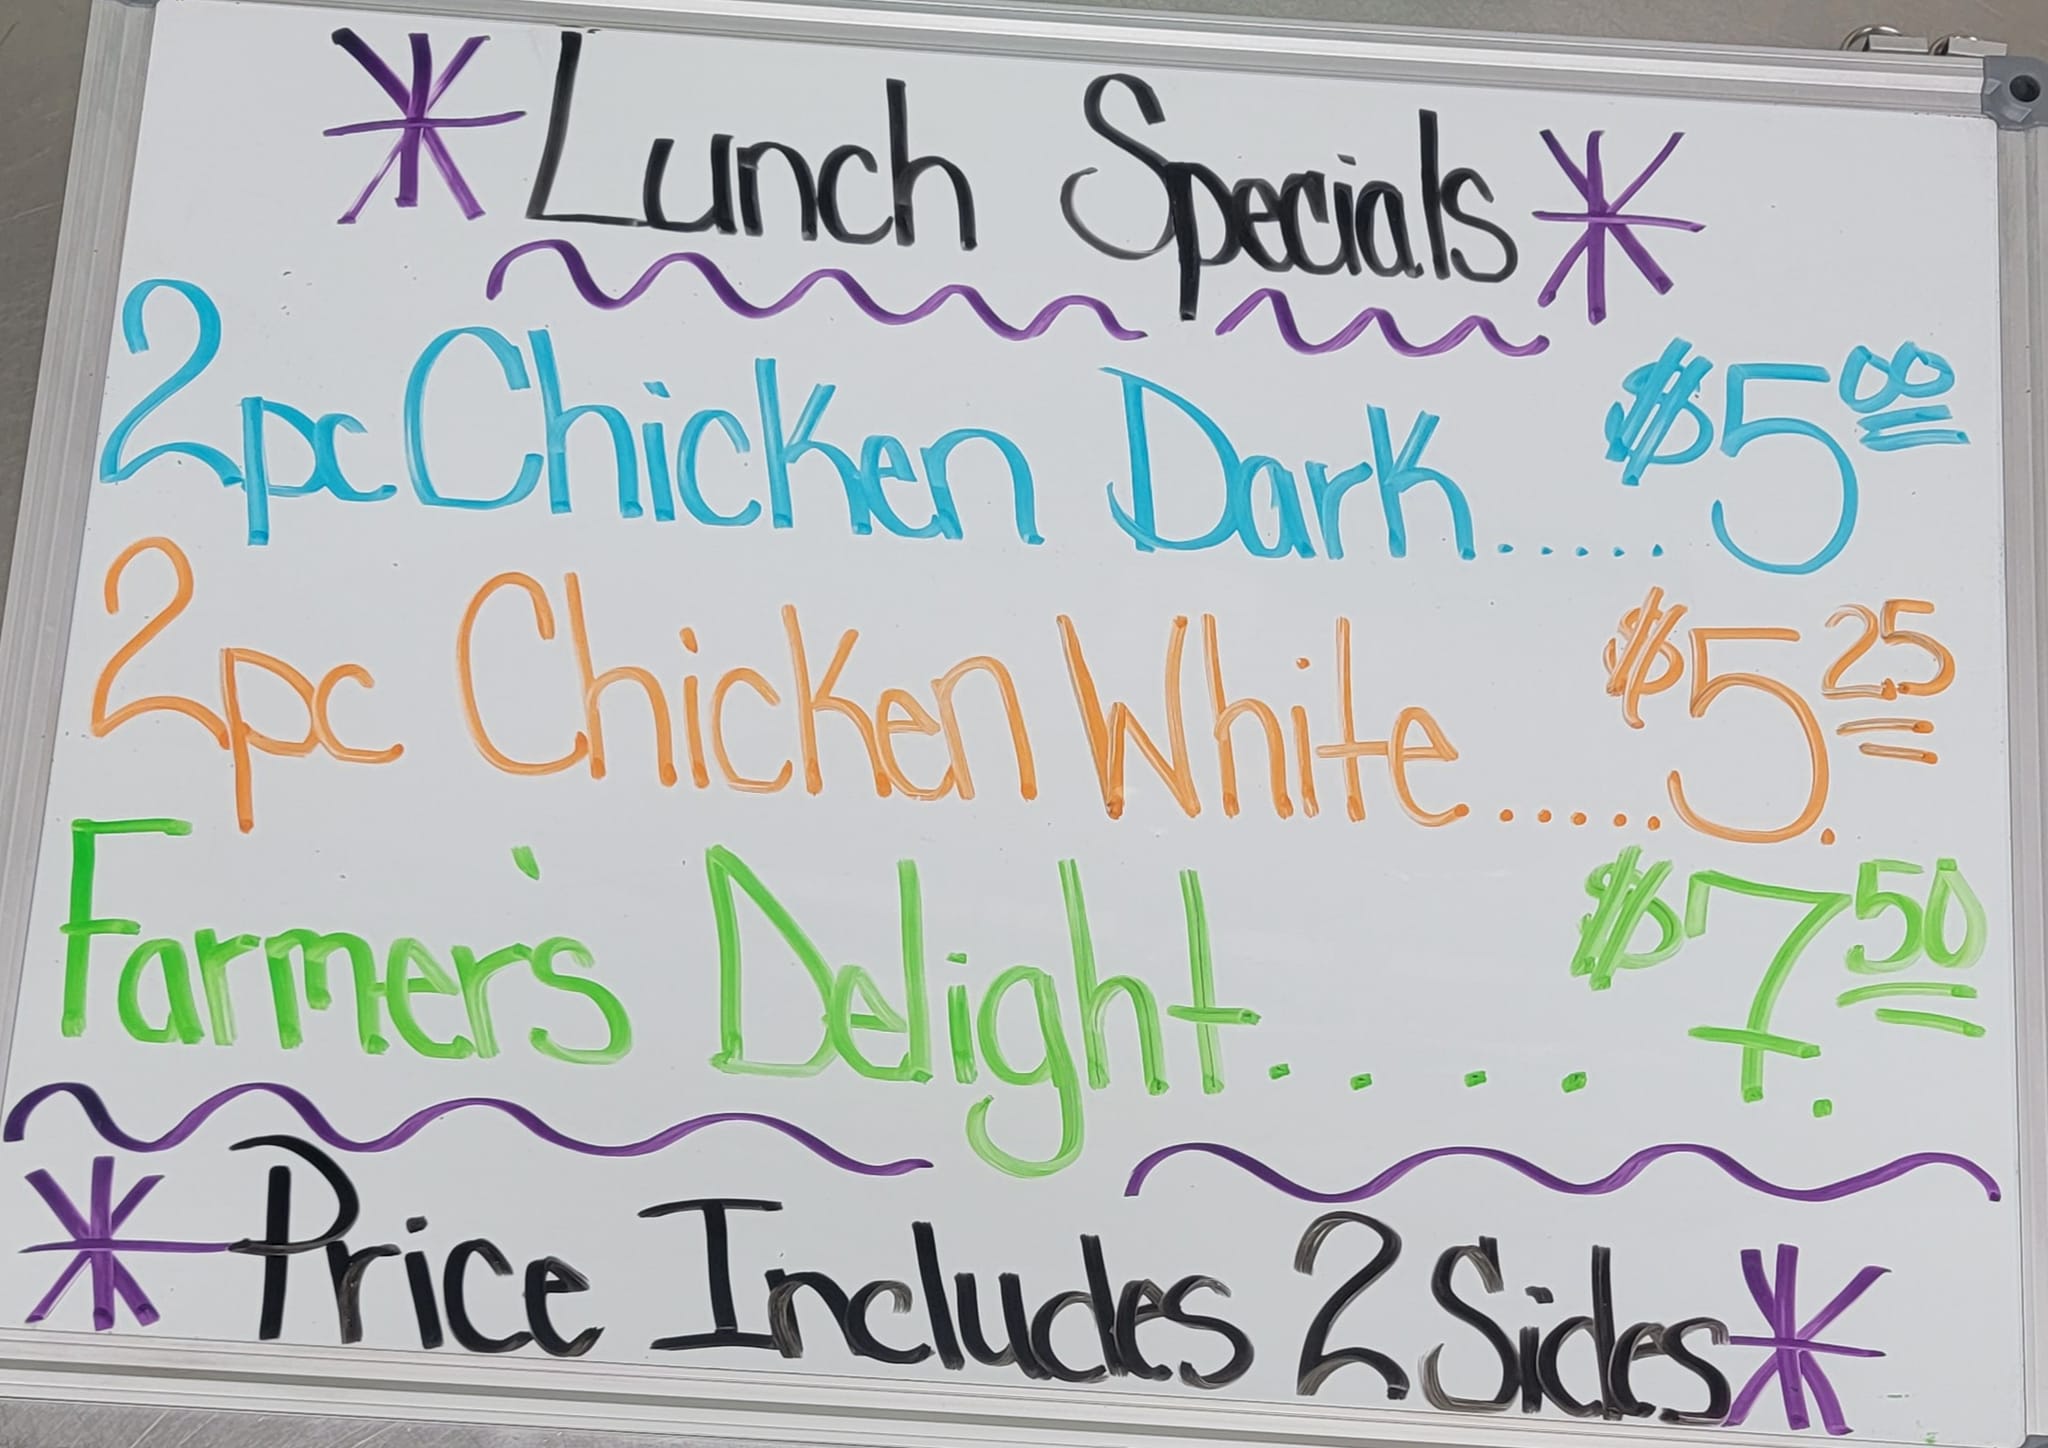 Lunch Specials
2pc Chicken Dark..... $5.00
2pc Chicken White..... $5.25
Farmer's Delight.... $7.50
Price Includes 2 Sides